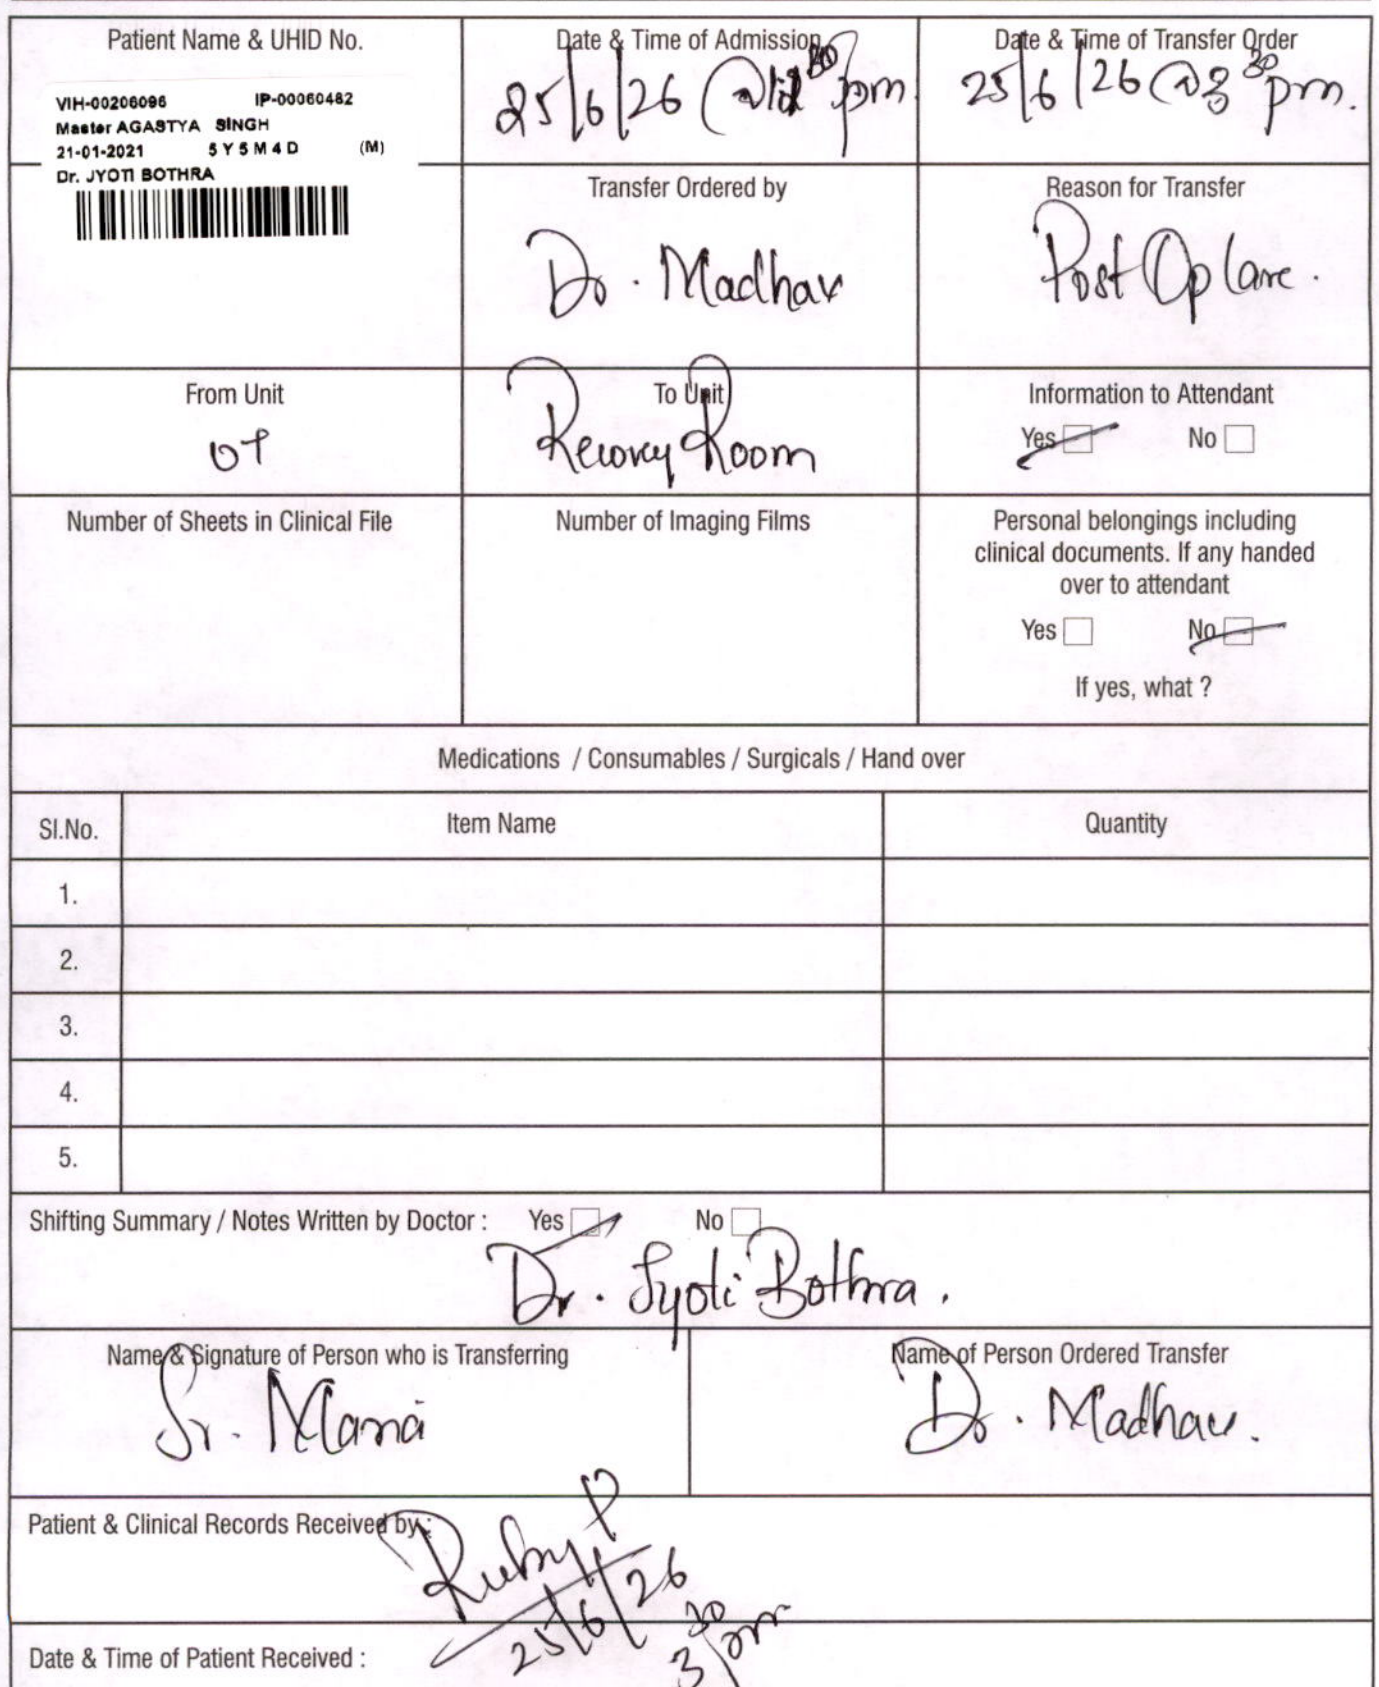 Patient Name & UHID No.
VIH-00206096 IP-00060482
Master AGASTYA SINGH
21-01-2021 5 Y 5 M 4 D (M)
Dr. JYOTI BOTHRA
Date & Time of Admission
25/6/26 @ 30 pm.
Date & Time of Transfer Order
25/6/26 @ 3 30 pm.
Transfer Ordered by
Dr. Madhav
Reason for Transfer
Post Op Care.
From Unit
OT
To Unit
Recovey Room
Information to Attendant
Yes No
Number of Sheets in Clinical File
Number of Imaging Films
Personal belongings including
clinical documents. If any handed
over to attendant
Yes No
If yes, what ?
Medications / Consumables / Surgicals / Hand over
Sl.No. Item Name Quantity
1.
2.
3.
4.
5.
Shifting Summary / Notes Written by Doctor : Yes No
Dr. Jyoti Bothra.
Name & Signature of Person who is Transferring
Sr.
Name of Person Ordered Transfer
Dr. Madhav.
Patient & Clinical Records Received by :
Ruby P
25/6/26
Date & Time of Patient Received :
3 30 pm